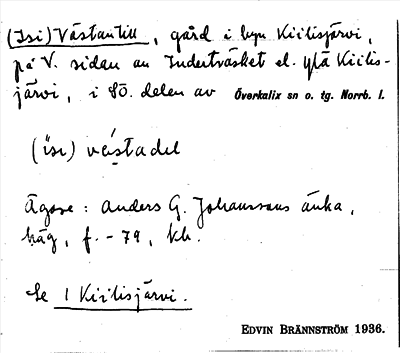 (Isi) Västantill, gård i byn Kiilisjärvi,
på V. sidan av Inderträsket el. Yliä Kiilis-
järvi, i SÖ. delen av Överkalix sn o. tg. Norrb. l.
(isi) västadel
Ägare: Anders G. Johanssons änka,
häg, f. -79, kh.
Se 1 Kiilisjärvi.
EDVIN BRÄNNSTRÖM 1936.